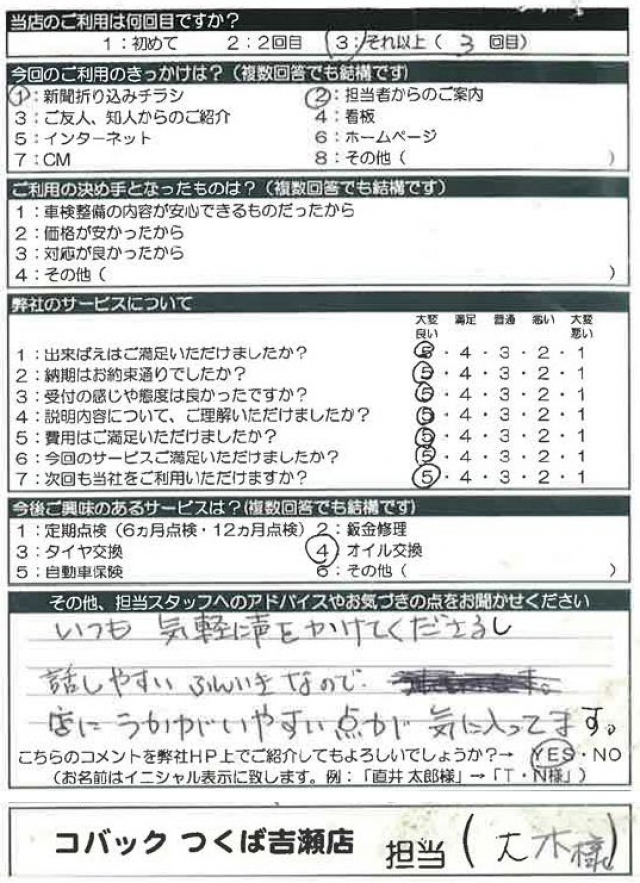 当店のご利用は何回目ですか？
1：初めて 2：2回目 3：それ以上（ 3 回目）
今回のご利用のきっかけは？（複数回答でも結構です）
1：新聞折り込みチラシ 2：担当者からのご案内
3：ご友人、知人からのご紹介 4：看板
5：インターネット 6：ホームページ
7：CM 8：その他（ ）
ご利用の決め手となったものは？（複数回答でも結構です）
1：車検整備の内容が安心できるものだったから
2：価格が安かったから
3：対応が良かったから
4：その他（ ）
弊社のサービスについて
大変良い 満足 普通 悪い 大変悪い
1：出来ばえはご満足いただけましたか？ 5・4・3・2・1
2：納期はお約束通りでしたか？ 5・4・3・2・1
3：受付の感じや態度は良かったですか？ 5・4・3・2・1
4：説明内容について、ご理解いただけましたか？ 5・4・3・2・1
5：費用はご満足いただけましたか？ 5・4・3・2・1
6：今回のサービスご満足いただけましたか？ 5・4・3・2・1
7：次回も当社をご利用いただけますか？ 5・4・3・2・1
今後ご興味のあるサービスは？(複数回答でも結構です)
1：定期点検（6ヵ月点検・12ヵ月点検） 2：鈑金修理
3：タイヤ交換 4：オイル交換
5：自動車保険 6：その他（ ）
その他、担当スタッフへのアドバイスやお気づきの点をお聞かせください
いつも 気軽に声をかけてくださるし
話しやすい ふんいきなので、
店にうかがいやすい点が 気に入ってます。
こちらのコメントを弊社HP上でご紹介してもよろしいでしょうか？→ YES・NO
（お名前はイニシャル表示に致します。例：「直井 太郎様」→「T・N様」）
コバック つくば吉瀬店 担当（大木様）